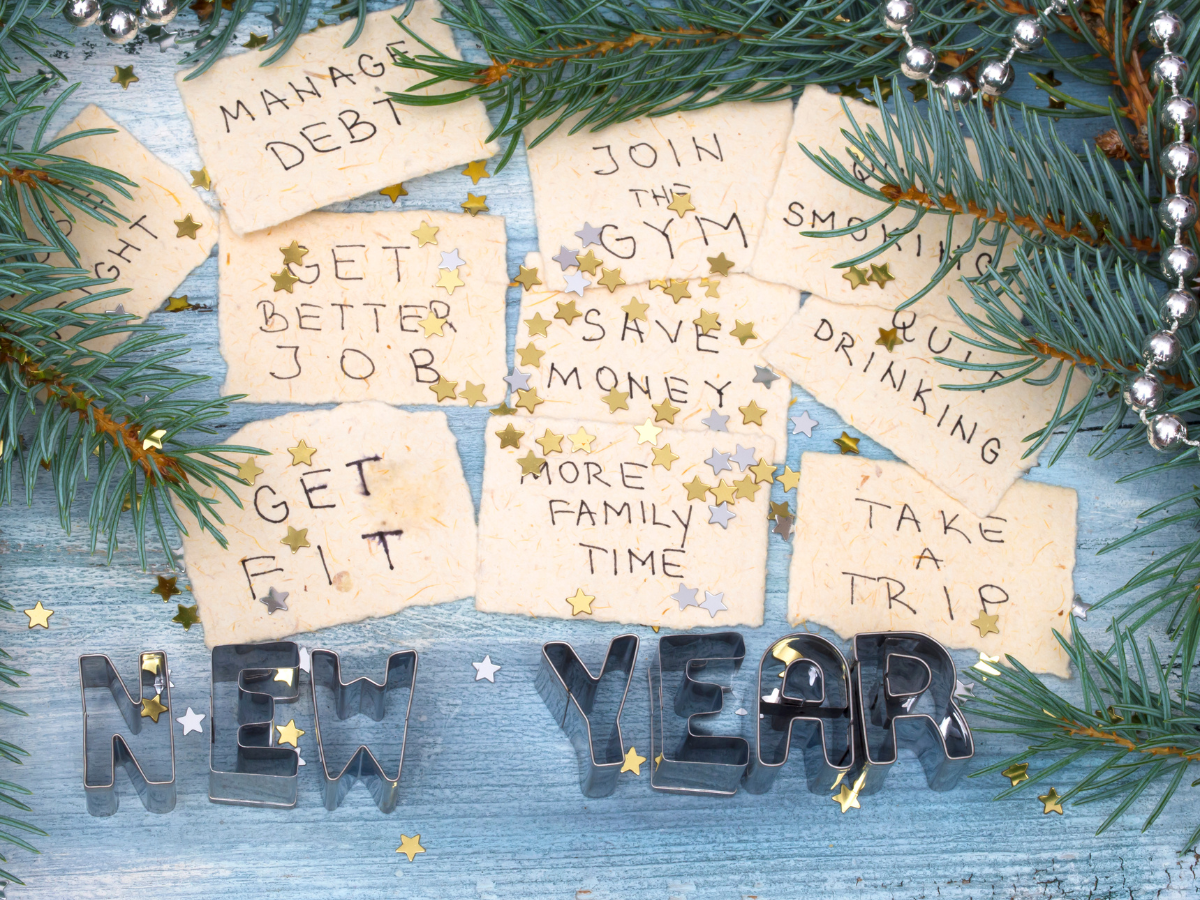 MANAGE
DEBT
JOIN
THE
GYM
SMOKING
GET
BETTER
JOB
SAVE
MONEY
QUIT
DRINKING
GET
FIT
MORE
FAMILY
TIME
TAKE
A
TRIP
NEW YEAR